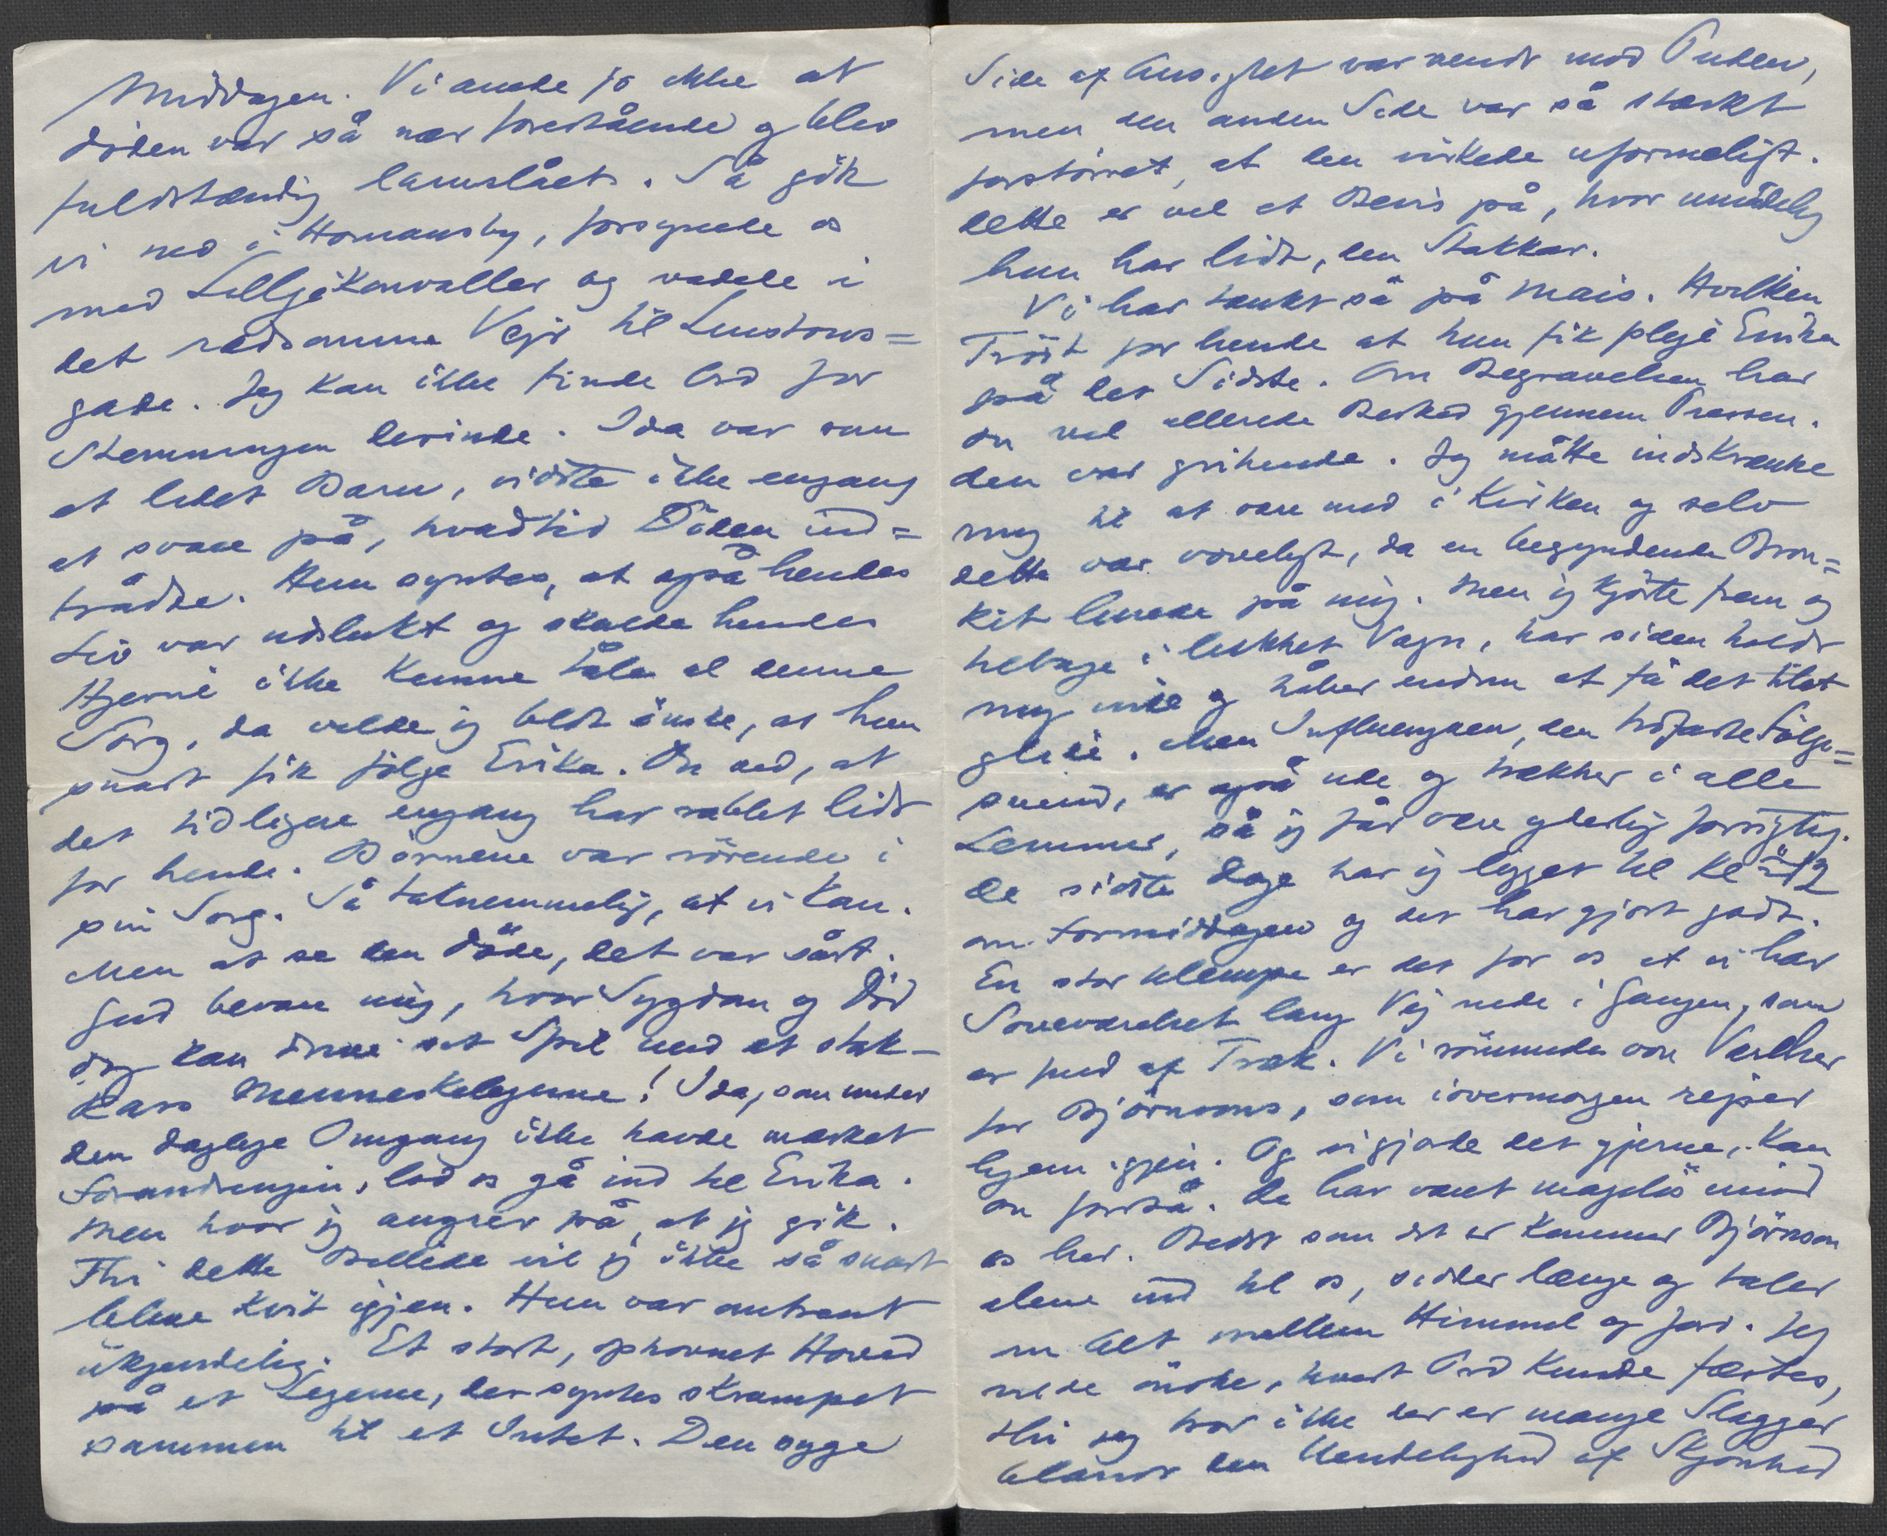 Middagen. Vi anede jo ikke at
Döden var så nær forestående og blev
fuldstændig lamslået. Så gik
vi ned i Homansby, forsynede os
med Lilljekonvaller og vadede i
det redsomme Vejr til Linstows=
gade. Jeg kan ikke finde Ord for
Stemningen derinde. Ida var som
et lidet Barn, vidste ikke engang
at svare på, hvadtid Döden ind=
trådte. Hun syntes, at også hendes
Liv var udslukt og skulde hendes
Hjerne ikke kunne tåle al denne
Sorg, da vilde jeg blot önske, at hun
snart fik fölge Erika. Du ved, at
det tidligere engang har rablet lidt
for hende. Börnene var rörende i
sin Sorg. Så taknemmelig, at vi kom.
Men at se den döde, det var sårt.
Gud bevare mig, hvor Sygdom og Död
dog kan drive sit Spil med et stak-
kars Menneskelegeme! Ida, som under
den daglige Omgang ikke havde mærket
Forandringen, lod os gå ind til Erika.
Men hvor jeg angrer på, at jeg gik.
Thi dette Billede vil jeg ikke så snart
blive kvit igjen. Hun var omtrent
ukjendelig. Et stort, ophovnet Hoved
på et Legeme, der syntes skrumpet
sammen til et Intet. Den syge
Side af Ansigtet var vendt mod Puden,
men den anden Side var så stærkt
forstörret, at den virkede uformeligt.
Dette er vel et Bevis på, hvor umådelig
hun har lidt, den Stakkar.
Vi har tænkt så på Mais. Hvilken
Tröst for hende at hun fik pleje Erika
på det Sidste. Om Begravelsen har
du vel allerede Besked gjennem Pressen.
Den var gribende. Jeg måtte indskrænke
mig til at være med i Kirken og selv
dette var voveligt, da en begyndende Bron=
kit lurede på mig. Men jeg kjörte frem og
tilbage i lukket Vogn, har siden holdt
mig inde og håber endnu at få det til at
glide. Men Influenzaen, den trofaste Fölge=
svend, er også ude og trækker i alle
Lemmer, så jeg får være yderlig forsigtig.
De sidste Dage har jeg ligget til Kl 12
om Formiddagen og det har gjort godt.
En stor Ulempe er det for os at vi har
Soveværelset lang Vej nede i Gangen, som
er fuld af Træk. Vi römmede vore Værelser
for Björnsons, som iovermorgen rejser
hjem igjen. Og vi gjorde det gjerne, kan
du forstå. De har været magelös mod
os her. Bedst som det er kommer Björnson
alene ind til os, sidder længe og taler
om Alt mellem Himmel og Jord. Jeg
vilde önske, hvert Ord kunde fæstes,
thi jeg tror ikke der er mange Slagger
blandt den Uendelighed af Skjönhed